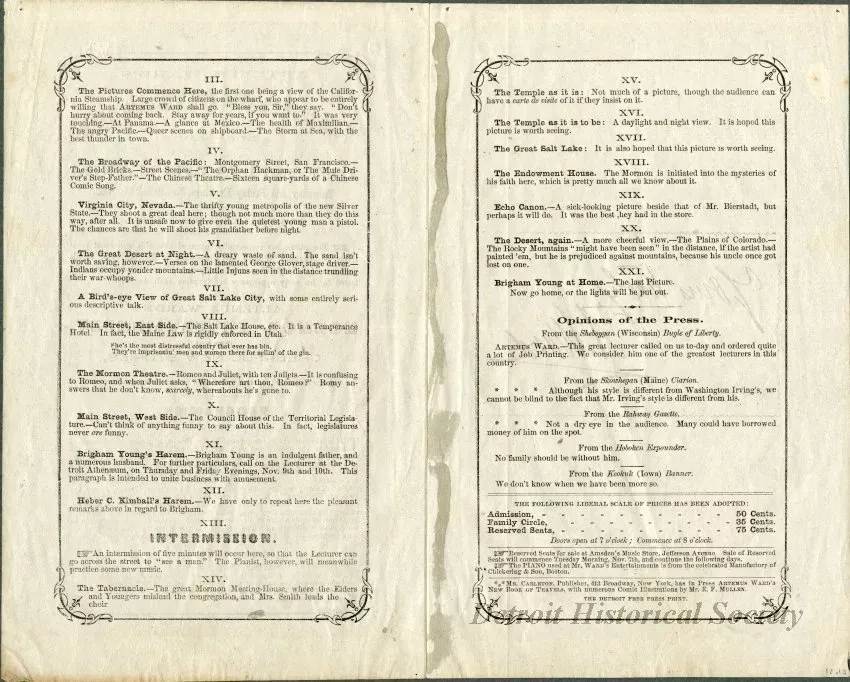 III.
The Pictures Commence Here, the first one being a view of the Califor-
nia Steamship. Large crowd of citizens on the wharf, who appear to be entirely
willing that ARTEMUS WARD shall go. "Bless you, Sir," they say. "Don't
hurry about coming back. Stay away for years, if you want to." It was very
touching.—At Panama.—A glance at Mexico.—The health of Maximilian.—
The angry Pacific.—Queer scenes on shipboard.—The Storm at Sea, with the
best thunder in town.
IV.
The Broadway of the Pacific: Montgomery Street, San Francisco.—
The Gold Bricks.—Street Scenes.—"The Orphan Hackman, or The Mule Dri-
ver's Step-Father."—The Chinese Theatre.—Sixteen square-yards of a Chinese
Comic Song.
V.
Virginia City, Nevada.—The thrifty young metropolis of the new Silver
State.—They shoot a great deal here; though not much more than they do this
way, after all. It is unsafe now to give even the quietest young man a pistol.
The chances are that he will shoot his grandfather before night.
VI.
The Great Desert at Night.—A dreary waste of sand. The sand isn't
worth saving, however.—Verses on the lamented George Glover, stage driver.—
Indians occupy yonder mountains.—Little Injuns seen in the distance trundling
their war-whoops.
VII.
A Bird's-eye View of Great Salt Lake City, with some entirely seri-
ous descriptive talk.
VIII.
Main Street, East Side.—The Salt Lake House, etc. It is a Temperance
Hotel. In fact, the Maine Law is rigidly enforced in Utah.
She's the most distressful country that ever has bin,
They're imprisonin' men and women there for sellin' of the gin.
IX.
The Mormon Theatre.—Romeo and Juliet, with ten Juliets.—It is confusing
to Romeo, and when Juliet asks, "Wherefore art thou, Romeo?" Romy an-
swers that he don't know, scarcely, whereabouts he's gone to.
X.
Main Street, West Side.—The Council House of the Territorial Legisla-
ture.—Can't think of anything funny to say about this. In fact, legislatures
never are funny.
XI.
Brigham Young's Harem.—Brigham Young is an indulgent father, and
a numerous husband. For further particulars, call on the Lecturer at the De-
troit Athenæum, on Thursday and Friday Evenings, Nov. 9th and 10th. This
paragraph is intended to unite business with amusement.
XII.
Heber C. Kimball's Harem.—We have only to repeat here the pleasant
remarks above in regard to Brigham.
XIII.
INTERMISSION.
☞An intermission of five minutes will occur here, so that the Lecturer can
go across the street to "see a man." The Pianist, however, will meanwhile
practice some new music.
XIV.
The Tabernacle.—The great Mormon Meeting-House, where the Elders
and Youngers mislead the congregation, and Mrs. Smith leads the
choir
XV.
The Temple as it is: Not much of a picture, though the audience can
have a carte de visite of it if they insist on it.
XVI.
The Temple as it is to be: A daylight and night view. It is hoped this
picture is worth seeing.
XVII.
The Great Salt Lake: It is also hoped that this picture is worth seeing.
XVIII.
The Endowment House. The Mormon is initiated into the mysteries of
his faith here, which is pretty much all we know about it.
XIX.
Echo Canon.—A sick-looking picture beside that of Mr. Bierstadt, but
perhaps it will do. It was the best ,hey had in the store.
XX.
The Desert, again.—A more cheerful view.—The Plains of Colorado.—
The Rocky Mountains "might have been seen" in the distance, if the artist had
painted 'em, but he is prejudiced against mountains, because his uncle once got
lost on one.
XXI.
Brigham Young at Home.—The last Picture.
Now go home, or the lights will be put out.
Opinions of the Press.
From the Sheboygan (Wisconsin) Bugle of Liberty.
ARTEMUS WARD.—This great lecturer called on us to-day and ordered quite
a lot of Job Printing. We consider him one of the greatest lecturers in this
country.
From the Skowhegan (Maine) Clarion.
* * * Although his style is different from Washington Irving's, we
cannot be blind to the fact that Mr. Irving's style is different from his.
From the Rahway Gazette.
* * * Not a dry eye in the audience. Many could have borrowed
money of him on the spot.
From the Hoboken Expounder.
No family should be without him.
From the Keokuk (Iowa) Banner.
We don't know when we have been more so.
THE FOLLOWING LIBERAL SCALE OF PRICES HAS BEEN ADOPTED:
Admission, - - - - - - - - - - 50 Cents.
Family Circle, - - - - - - - - - - 35 Cents.
Reserved Seats, - - - - - - - - - - 75 Cents.
Doors open at 7 o'clock; Commence at 8 o'clock.
☞Reserved Seats for sale at Amsden's Music Store, Jefferson Avenue. Sale of Reserved
Seats will commence Tuesday Morning, Nov. 7th, and continue the following days.
☞The PIANO used at MR. WARD'S Entertainments is from the celebrated Manufactory of
Chickering & Son, Boston.
*⁎*MR. CARLETON, Publisher, 413 Broadway, New York, has in Press ARTEMUS WARD'S
NEW BOOK OF TRAVELS, with numerous Comic Illustrations by MR. E. F. MULLEN.
THE DETROIT FREE PRESS PRINT.
Detroit Historical Society